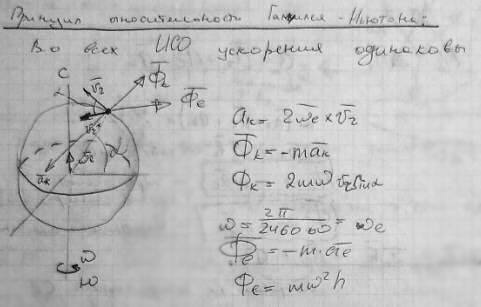 Принцип относительности Галилея - Ньютона:
Во всех ИСО ускорения одинаковы
C
α
v̅₂
Φ̅ₖ
Φ̅ₑ
v̅₂'
ω̅ₑ
a̅ₖ
α
ω
Ю
aₖ = 2ω̅ₑ × v̅₂
Φ̅ₖ = -ma̅ₖ
Φₖ = 2mω v₂ sin α
ω = 2π / 24·60·60 = ωₑ
Φ̅ₑ = -m·a̅ₑ
Φₑ = mω²h